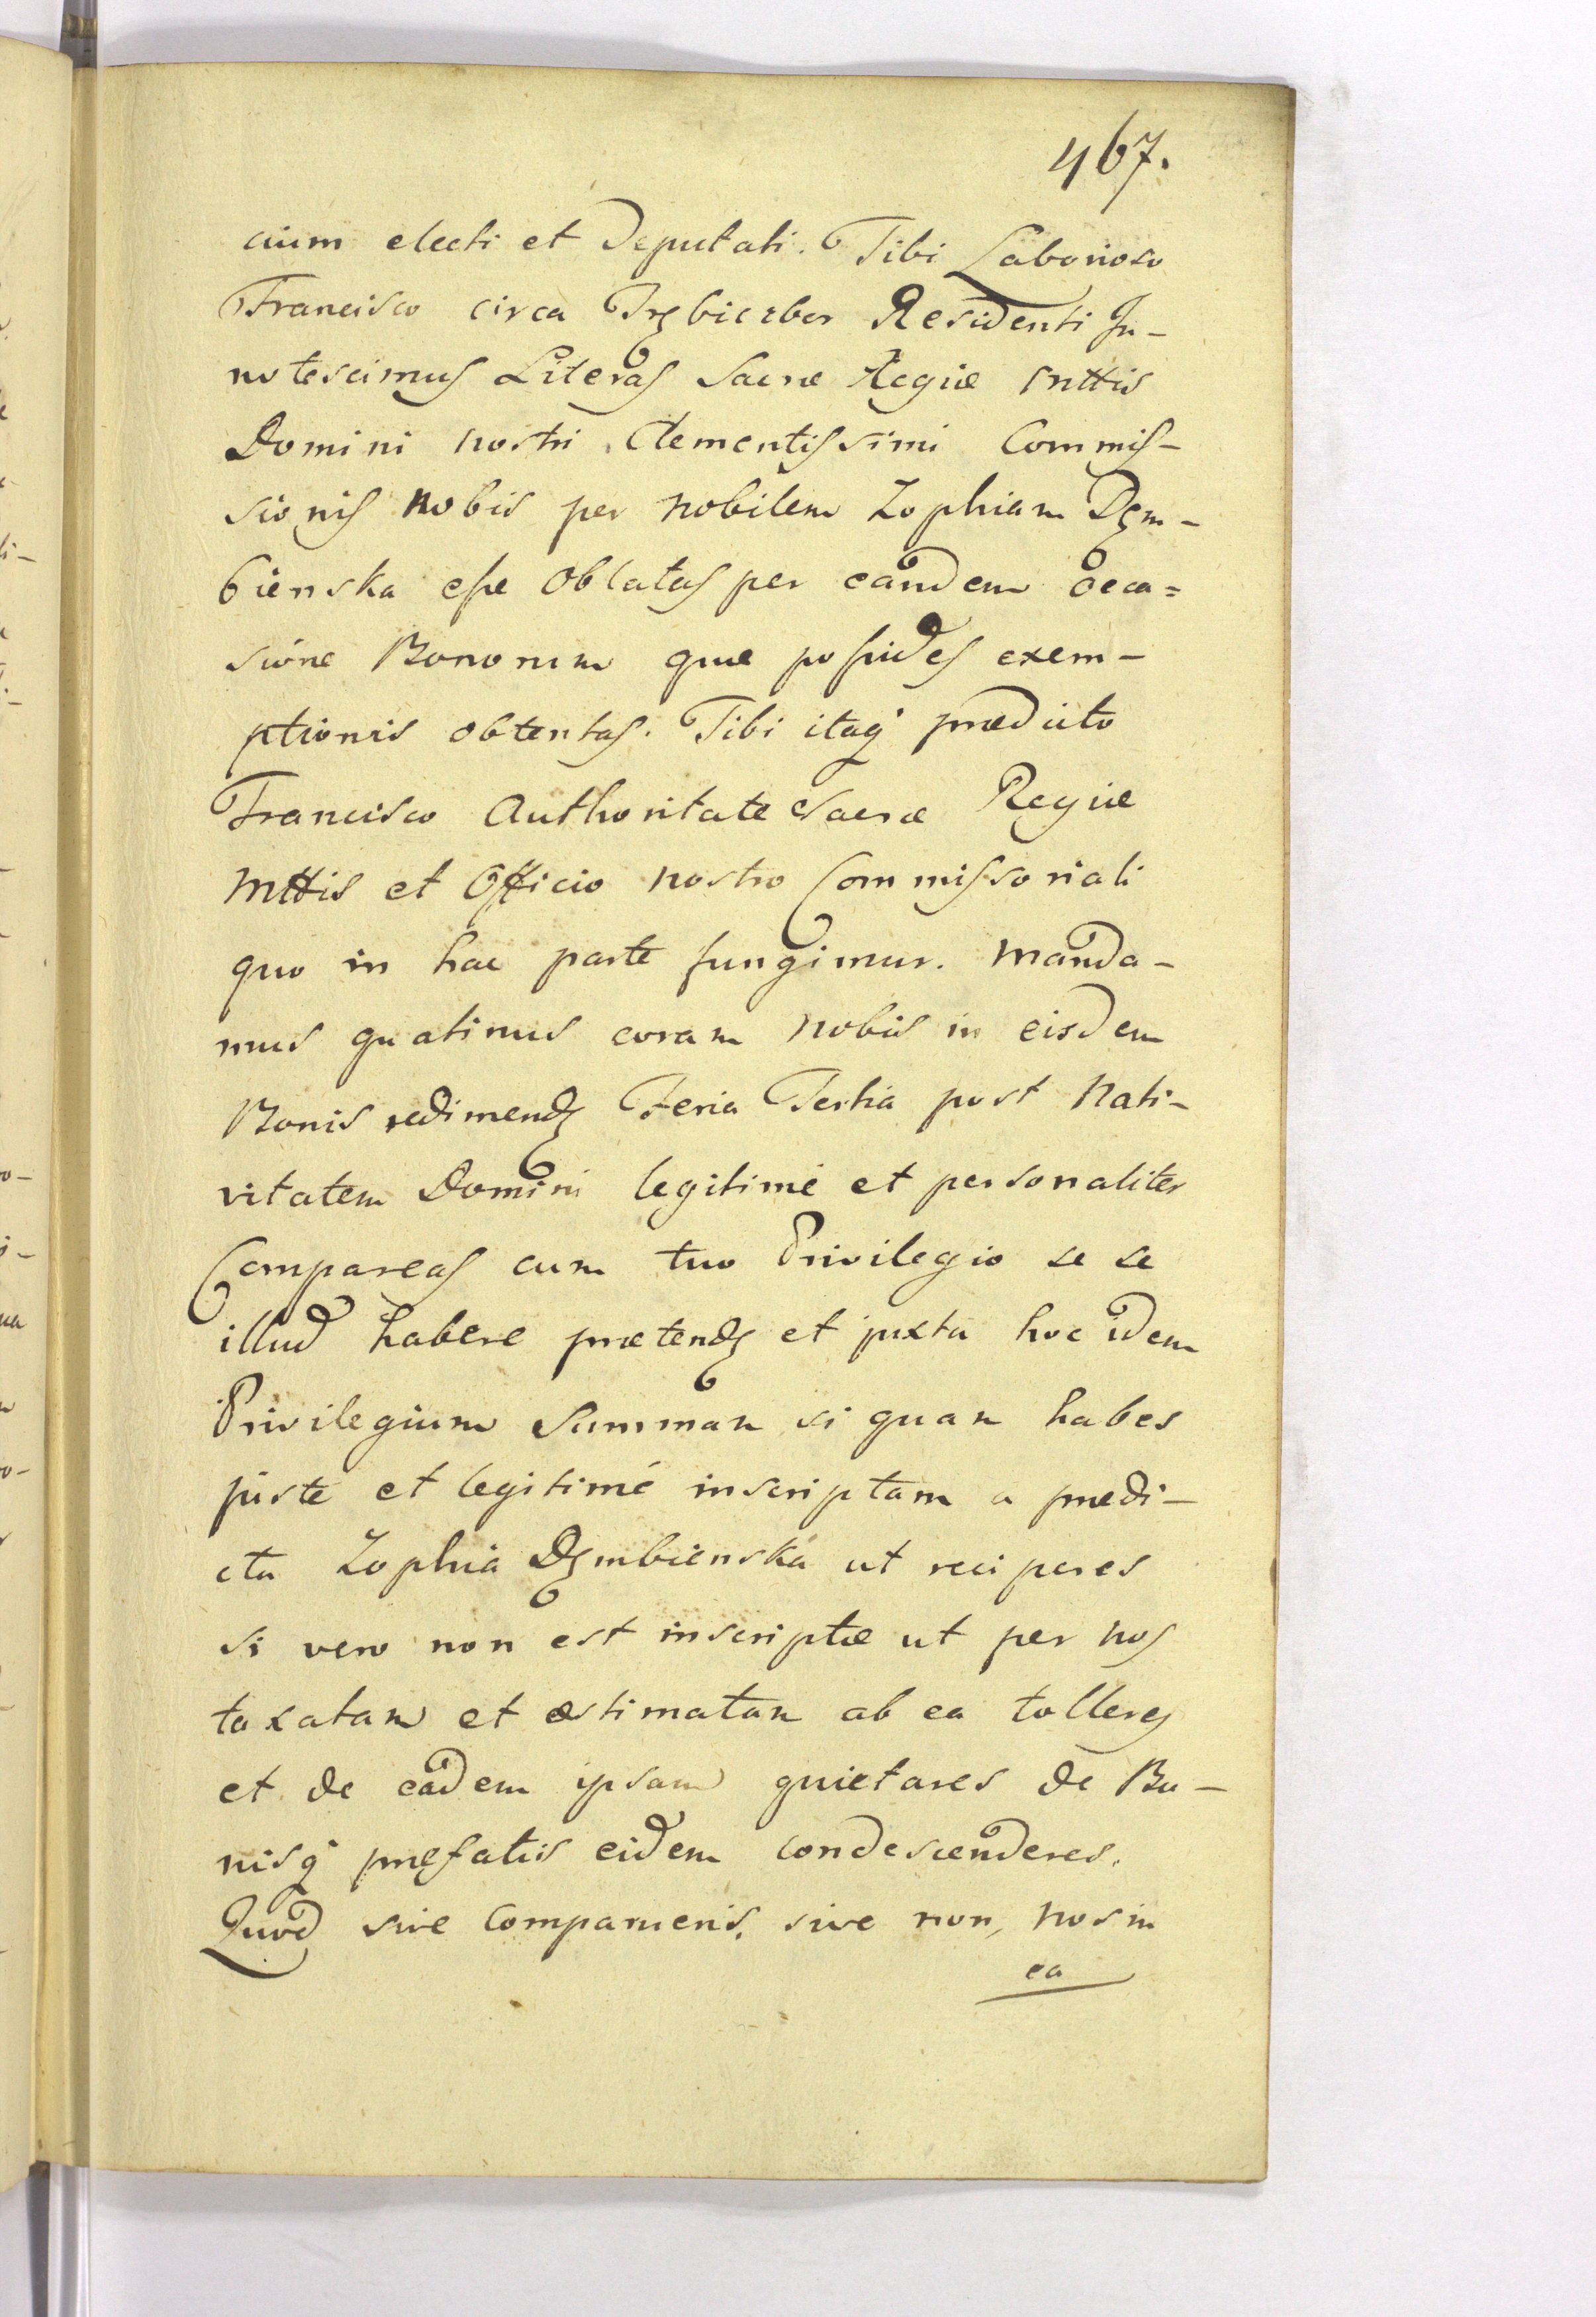 467.
cium electi et Deputati. Tibi Laborioso
Francisco circa Residenti In-
notescimus Literas Sacræ Regiæ Mttis
Domini nostri Clementissimi Commis-
sionis nobis per nobilem Zophiam Dęm-
bienska esse Oblatas per eandem occa=
sione Bonorum quæ possides exem-
ptionis obtentas. Tibi itaq prædicto
Francisco Authoritate Sacræ Regiæ
Mttis et Officio nostro Commissoriali
quo in hac parte fungimur. Manda-
mus quatinus coram nobis in eisdem
Bonis redimendę Feria Tertia post Nati-
vitatem Domini legitimé et personaliter
Compareas cum tuo Privilegio se se
illud habere prætendę et juxta hoc idem
Privilegium Summam si quam habes
juste et legitimé inscriptam a prædi-
cta Zophia Dęmbienska ut reciperes
si vero non est inscriptæ ut per nos
taxatam et æstimatam ab ea tolleres
et de eadem ipsam quietares de Bo-
nisq præfatis eidem condescenderes.
Quod sive Comparueris, sive non, nos in
ea